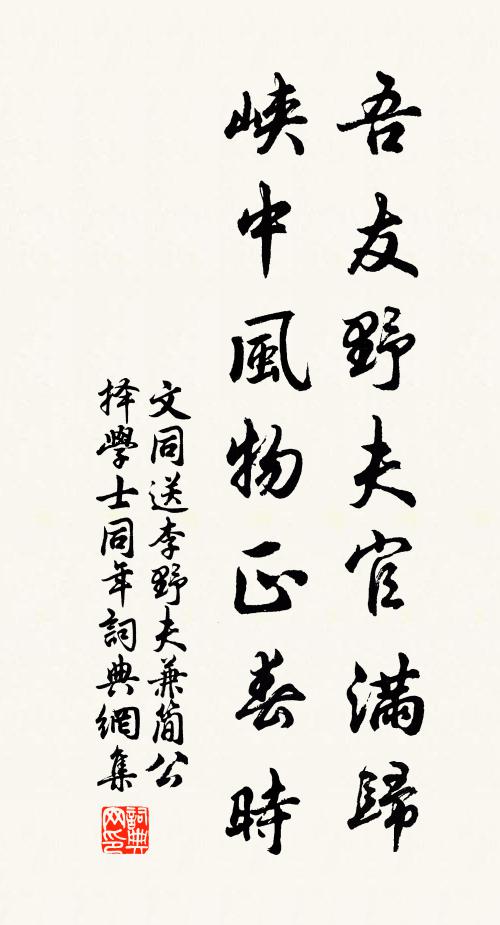 吾友野夫官滿歸
峽中風物正春時
文同送李野夫兼簡公
择學士同年詞典網集
詞典
网印